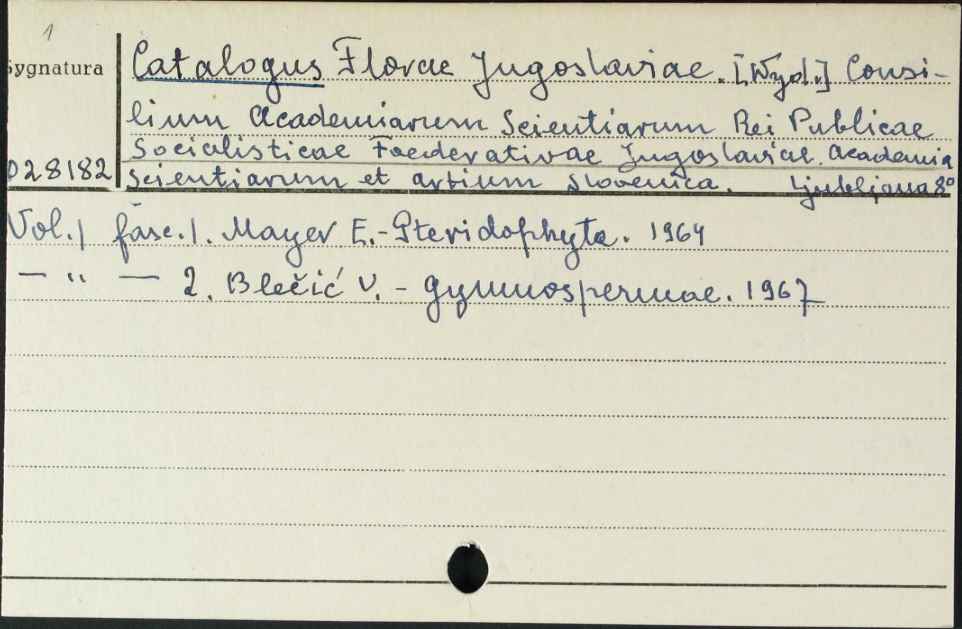 1
Sygnatura
Catalogus Florae Jugoslaviae. [Wyd.] Consi-
lium Academiarum Scientiarum Rei Publicae
Socialisticae Foederativae Jugoslaviae. Academia
028182 Scientiarum et artium Slovenica. Ljubljana 8°
Vol. 1 fasc. 1. Mayer E. - Pteridophyta. 1964
— " — 2. Blečić V. - Gymnospermae. 1967